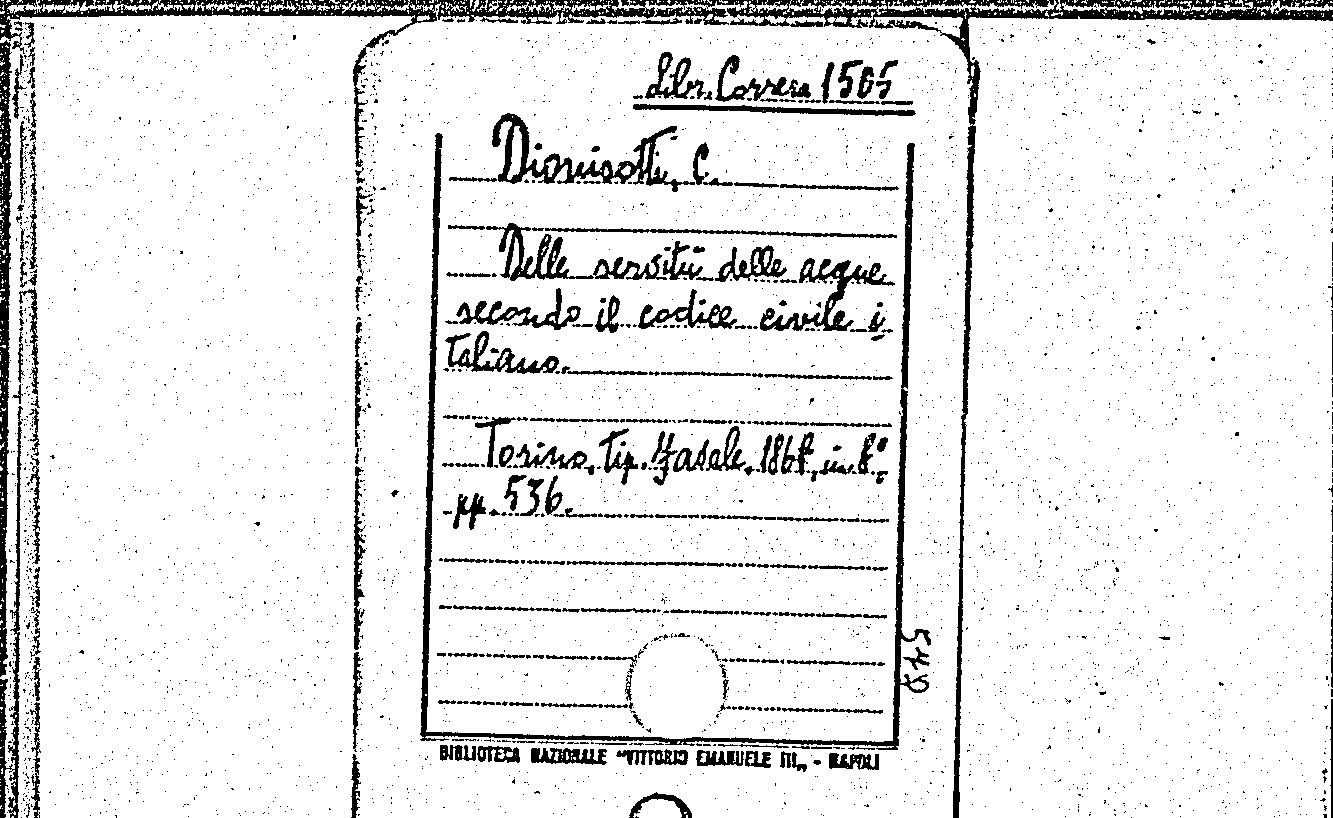 Libr. Correra 1505
Dionisotti, C.
Delle servitù delle acque
secondo il codice civile i
taliano.
Torino, tip. Fasele, in 8°,
pp. 536.
549
BIBLIOTECA NAZIONALE "VITTORIO EMANUELE III„ - NAPOLI